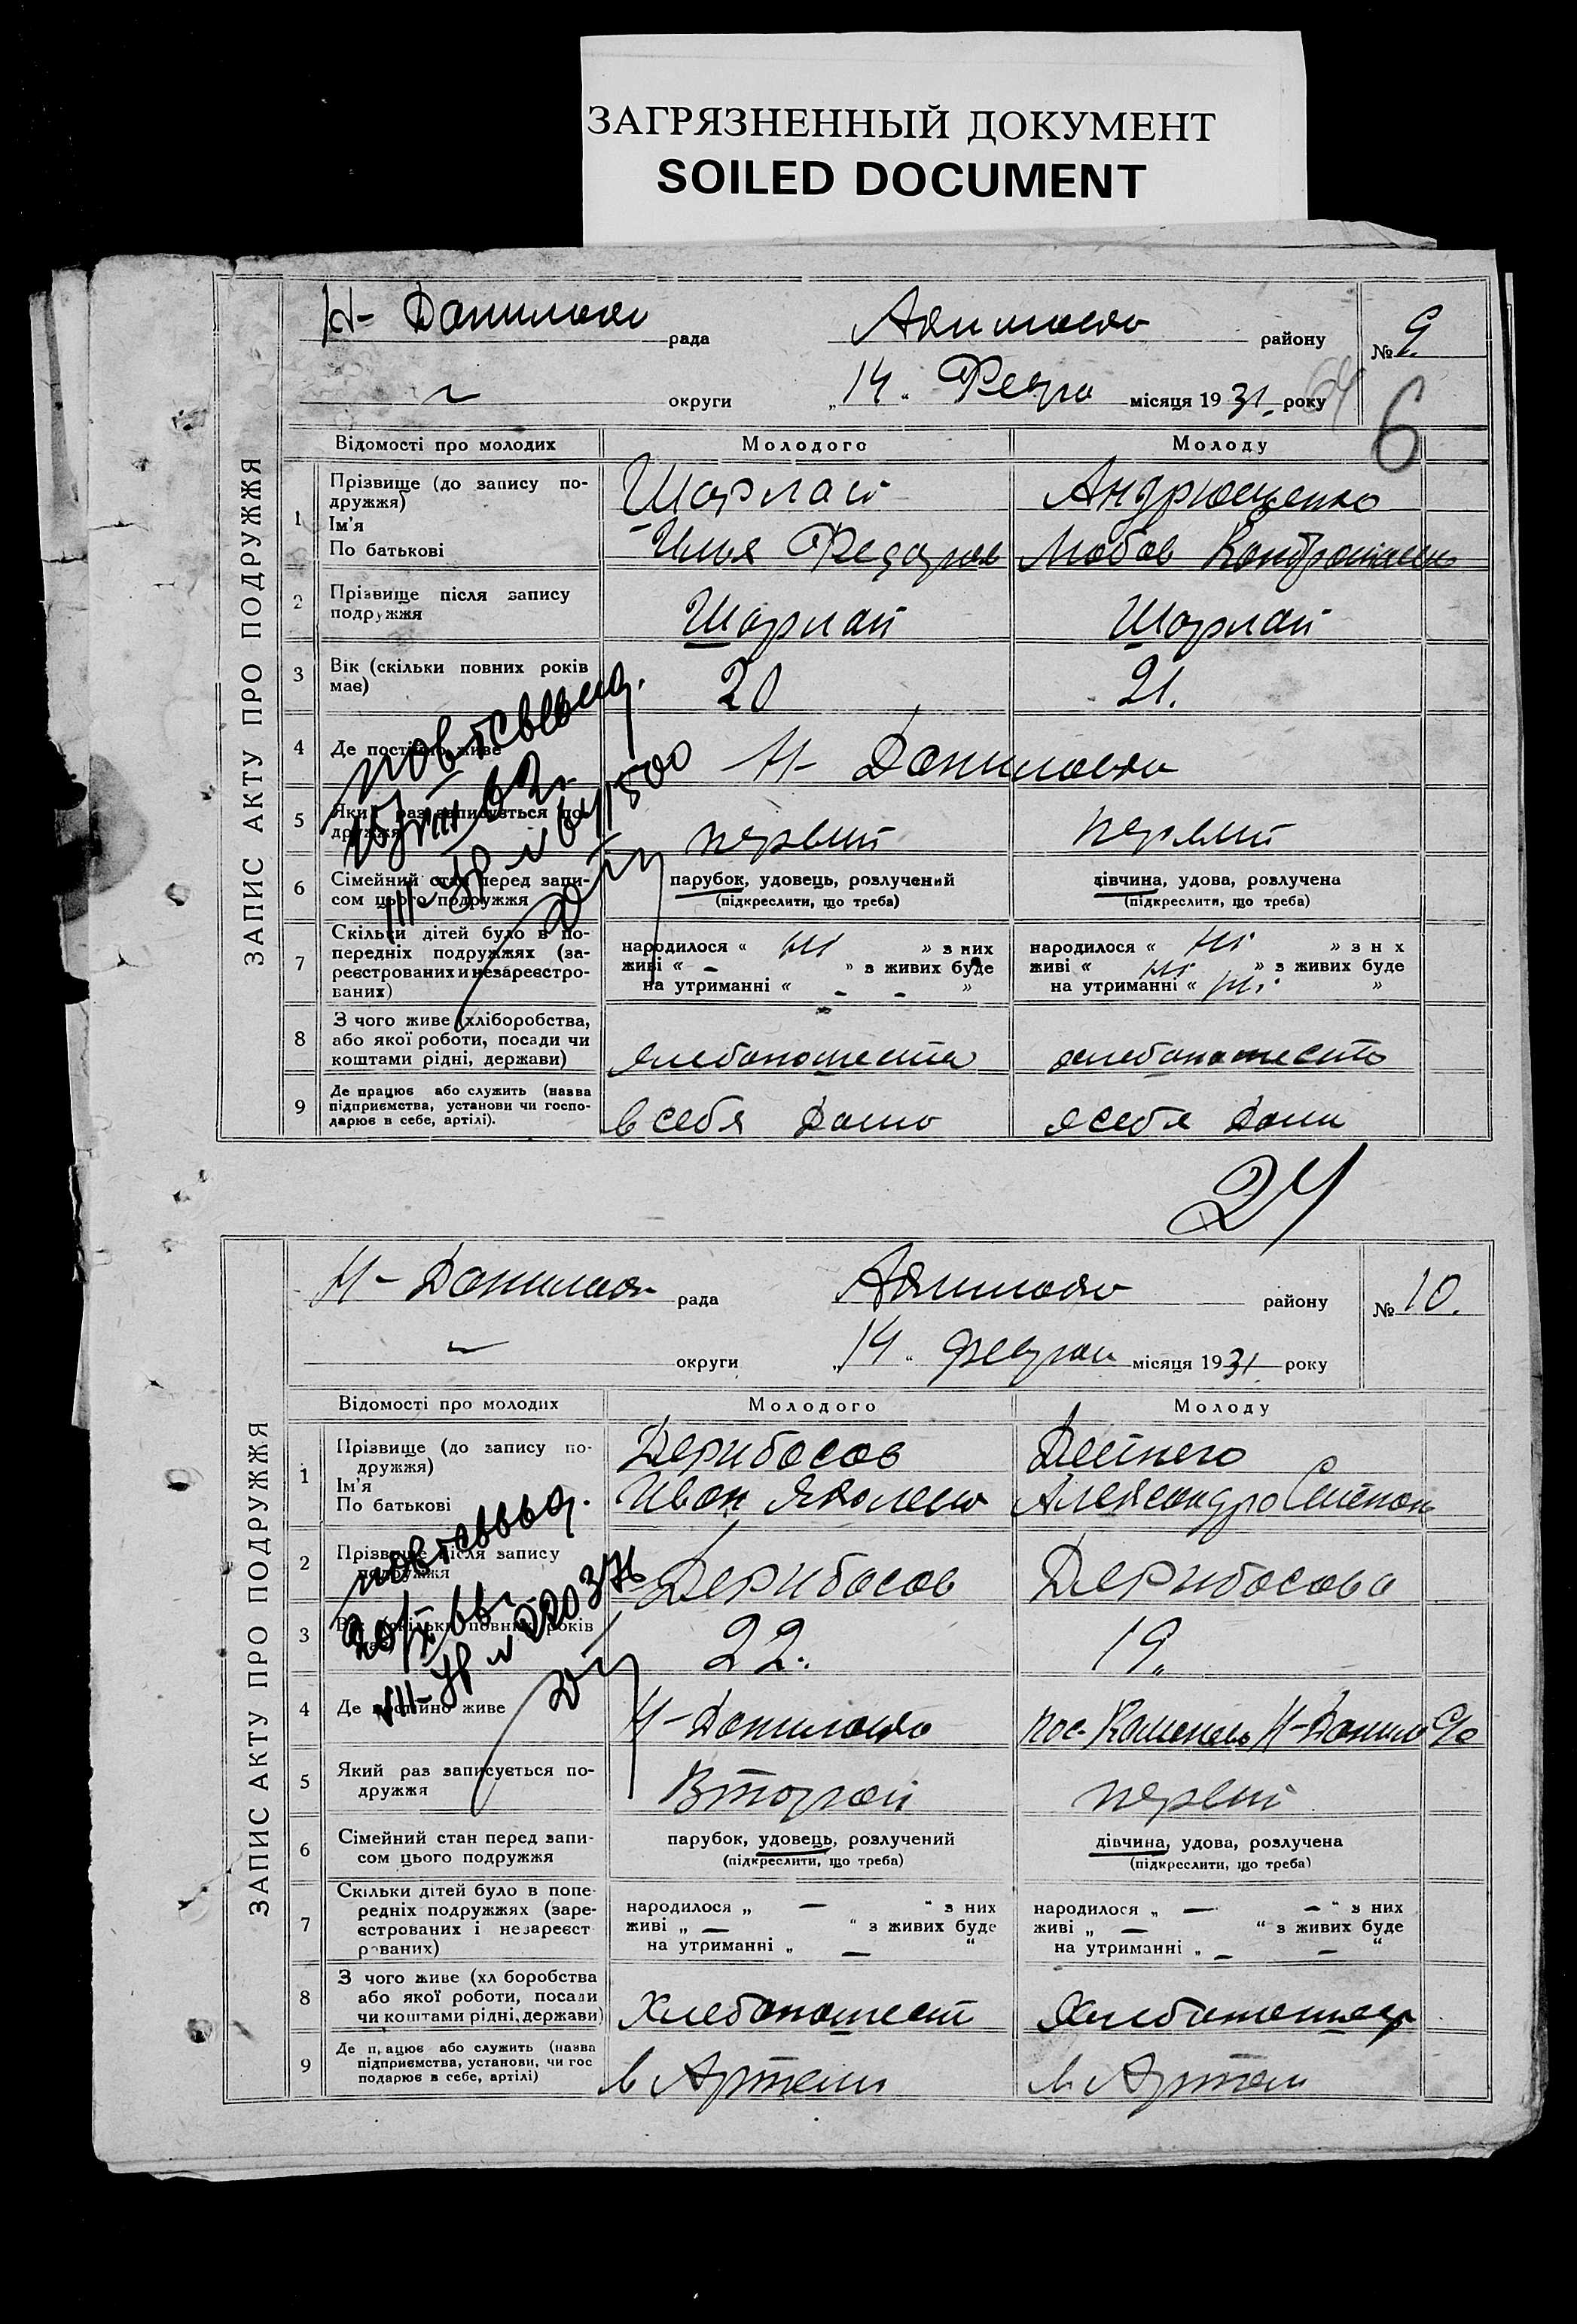 ЗАГРЯЗНЕННЫЙ ДОКУМЕНТ
SOILED DOCUMENT
ЗАПИС АКТУ ПРО ПОДРУЖЖЯ
Н- Данилов рада району № 9
округи „14“ Февра місяця 1931. року 64
6
Відомості про молодих Молодого Молоду
1 Прізвище (до запису по-
дружжя) Шарлай Андрющенко
Ім'я
По батькові Илья Федоров Любов Кондратьевн
2 Прізвище після запису
подружжя Шарлай Шарлай
3 Вік (скільки повних років
має) 20 21.
повт свывыд.
4 Де постійно живе Н- Даниловка
5 Який раз записується по-
дружжя первый первый
6 Сімейний стан перед запи-
сом цього подружжя парубок, удовець, розлучений дівчина, удова, розлучена
(підкреслити, що треба) (підкреслити, що треба)
7 Скільки дітей було в по-
передніх подружжях (за-
реєстрованих и незареєстро-
ваних)
народилося « » з них народилося « » з н х
живі « – » з живих буде живі « » з живих буде
на утриманні « – – » на утриманні « »
8 З чого живе (хліборобства,
або якої роботи, посади чи
коштами рідні, держави) хлебопашество хлебопашество
9 Де працює або служить (назва
підприємства, установи чи госпо-
дарює в себе, артілі). в себя Дома в себя Дома
24
ЗАПИС АКТУ ПРО ПОДРУЖЖЯ
Н- Данилов рада району № 10.
округи „14“ Феврал місяця 1931. року
Відомості про молодих Молодого Молоду
1 Прізвище (до запису по-
дружжя) Дерибасов Дейнего
Ім'я
По батькові Иван Яковлев Александра Степан
2 Прізвище після запису
подружжя Дерибасов Дерибасова
3 Вік (скільки повних років
має) 22. 19.
4 Де постійно живе Н-Даниловка пос. Н-Данило с/с
5 Який раз записується по-
дружжя Второй первый
6 Сімейний стан перед запи-
сом цього подружжя парубок, удовець, розлучений дівчина, удова, розлучена
(підкреслити, що треба) (підкреслити, що треба)
7 Скільки дітей було в попе-
редніх подружжях (заре-
єстрованих і незареєст
рованих)
народилося „ — “ з них народилося „ — — “ з них
живі „ — “ з живих буде живі „ — “ з живих буде
на утриманні „ — “ на утриманні „ — — “
8 З чого живе (хл боробства
або якої роботи, посади
чи коштами рідні, держави) Хлебопашест Хлебопашес
9 Де працює або служить (назва
підприємства, установи, чи гос
подарює в себе, артілі) в Артели в Артели